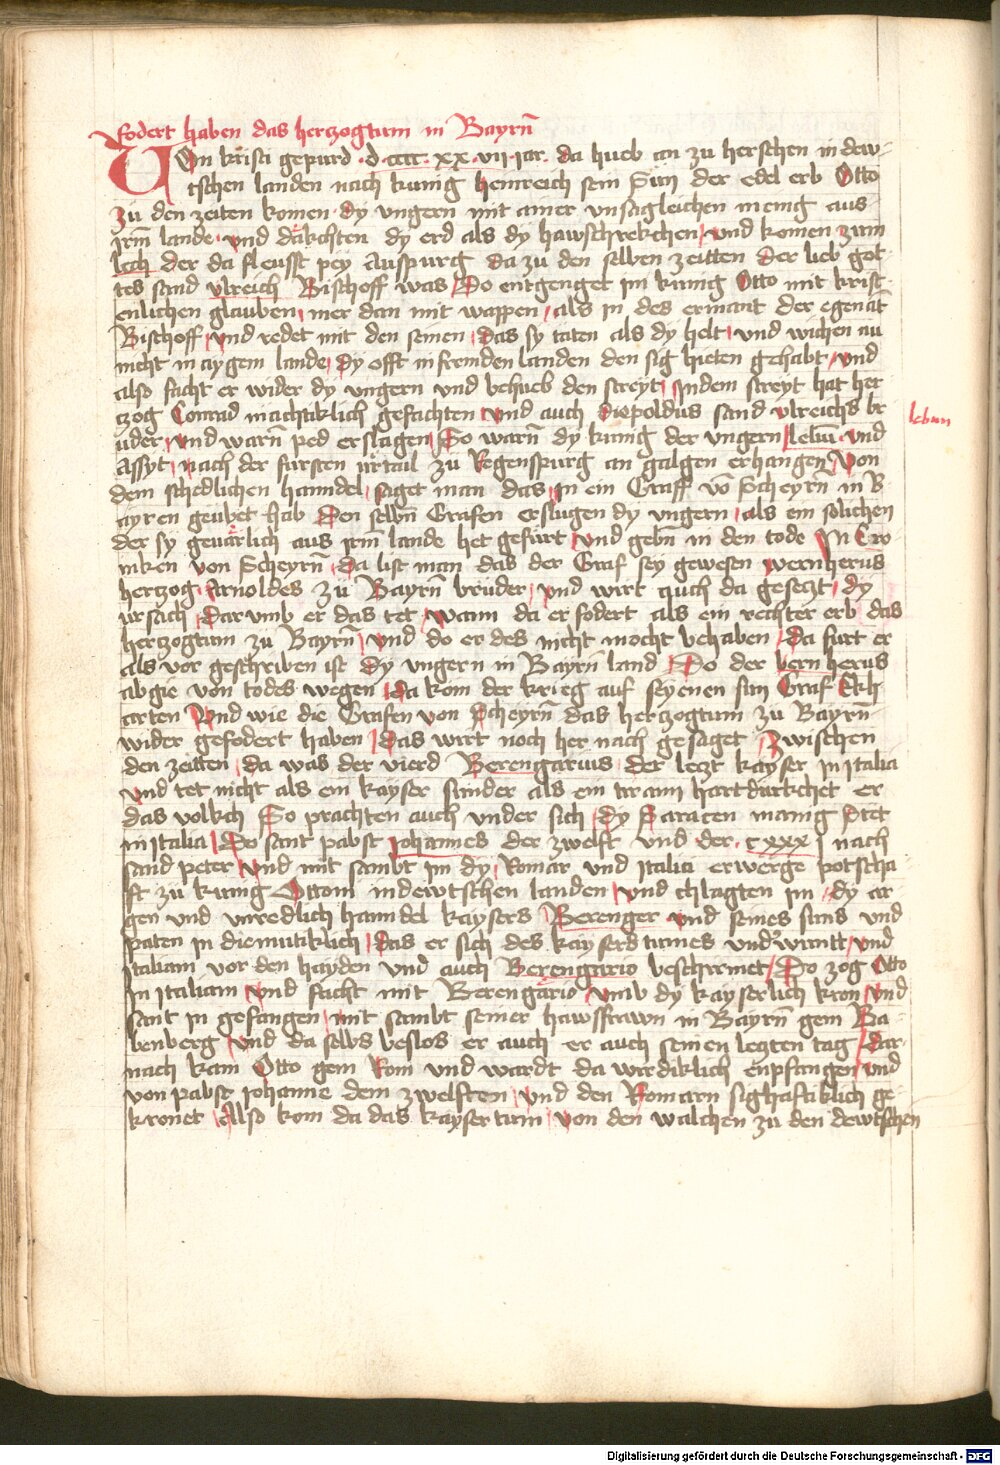 fodert haben das herczogtum in Bayrn̄
Von kristi gepurd ·d·cccc·xx·vij·iar· da hueb an zu herschen in dew-
tschen landen nach kunig heinreich sein Sun der edel erb Otto
Zu den zeiten komen dy vngern mit ainer vnsagleichen menig aus
irm̄ lande vnd dackchten dy erd als dy hawschrekchen vnd komen zum
lech der da fleusst pey Auspurg da zu den selben zeitten der lieb got
tes sand vlreich Bischoff was Do entgenget im kunig Otto mit krist
enlichen glauben mer dan mit wappen als in des ermant der egenāt
Bischoff vnd redet mit den seinen das sy taten als dy helt vnd wichen nu
nicht in aygem lande dy offt in fremden landen den sig hieten gehabt vnd
also facht er wider dy vngern vnd behueb den streyt Jndem streyt hat her
czog Conrad machtiklich gefachten vnd auch Diepoldus sand vlreichs br
uder vnd warn̄ ped erslagen So warn̄ dy kunig der vngern lelū vnd
lehun
Assyt nach der fursten vrtail zu Regenspurg an galgen erhangen Von
dem schedlichen hanndel saget man das in ein Graff vō Scheyrn̄ in B
ayren geubet hab Den selbn̄ Grafen erslugen dy vngern als ein solichen
der sy geuarlich aus irm̄ lande het gefurt vnd gebn̄ in den tode Jn Cro
niken von Scheyrn̄ Da list man das der Graf sey gewesen wernherus
herczog Arnoldes zu Bayrn̄ bruder vnd wirt auch da geseczt dy
vrsach darvmb er das tet wann da er fodert als ein rechter erb das
herczogtum zu Bayrn̄ vnd do er des nicht mocht behaben Da furt er
als vor geschriben ist dy vngern in Bayrn̄ land Do der bernherus
abgie von todes wegen da kom der krieg auf seyenen sun Graf Ekh
arten Vnd wie die Grafen von Scheyrn̄ das herczogtum zu Bayrn̄
wider gefodert haben das wirt noch her nach gesaget Zwischen
den zeitten da was der vierd Berengarius der leczt kayser in Italia
vnd tet nicht als ein kayser sunder als ein tirann hart durkchet er
das volkch So prachten auch vnder sich dy Saracen manig Stet
in Italia Do sant pabst Johannes der zwelft vnd der cxxx j nach
sand peter vnd mit sambt im dy Romar vnd Italia erwerge potscha
ft zu kunig Ottom in dewtschen landen vnd chlagten im dy ar
gen vnd vnredlich hanndel kaysers Berenger vnd seines suns vnd
paten in diemutiklich das er sich des kaysers tumes vnd'wintt vnd
Italiam vor den hayden vnd auch Berengario beschirmet Do zog Otto
in Italiam vnd facht mit Berengario vmb dy kayserlich kron vnd
sant in gefangen mit sambt seiner hawssfrawn in Bayrn̄ gem Ba
benberg vnd da selbs beslos er auch er auch seinen leczten tag Dar-
nach kam Otto gem Rom vnd wardt da wirdiklich enpfangen vnd
von pabst Johanne dem zwelften vnd den Romarn sighaftiklich ge
kronet Also kom da das kaysertum von den walchen zu den dewtschen
Digitalisierung gefördert durch die Deutsche Forschungsgemeinschaft - DFG